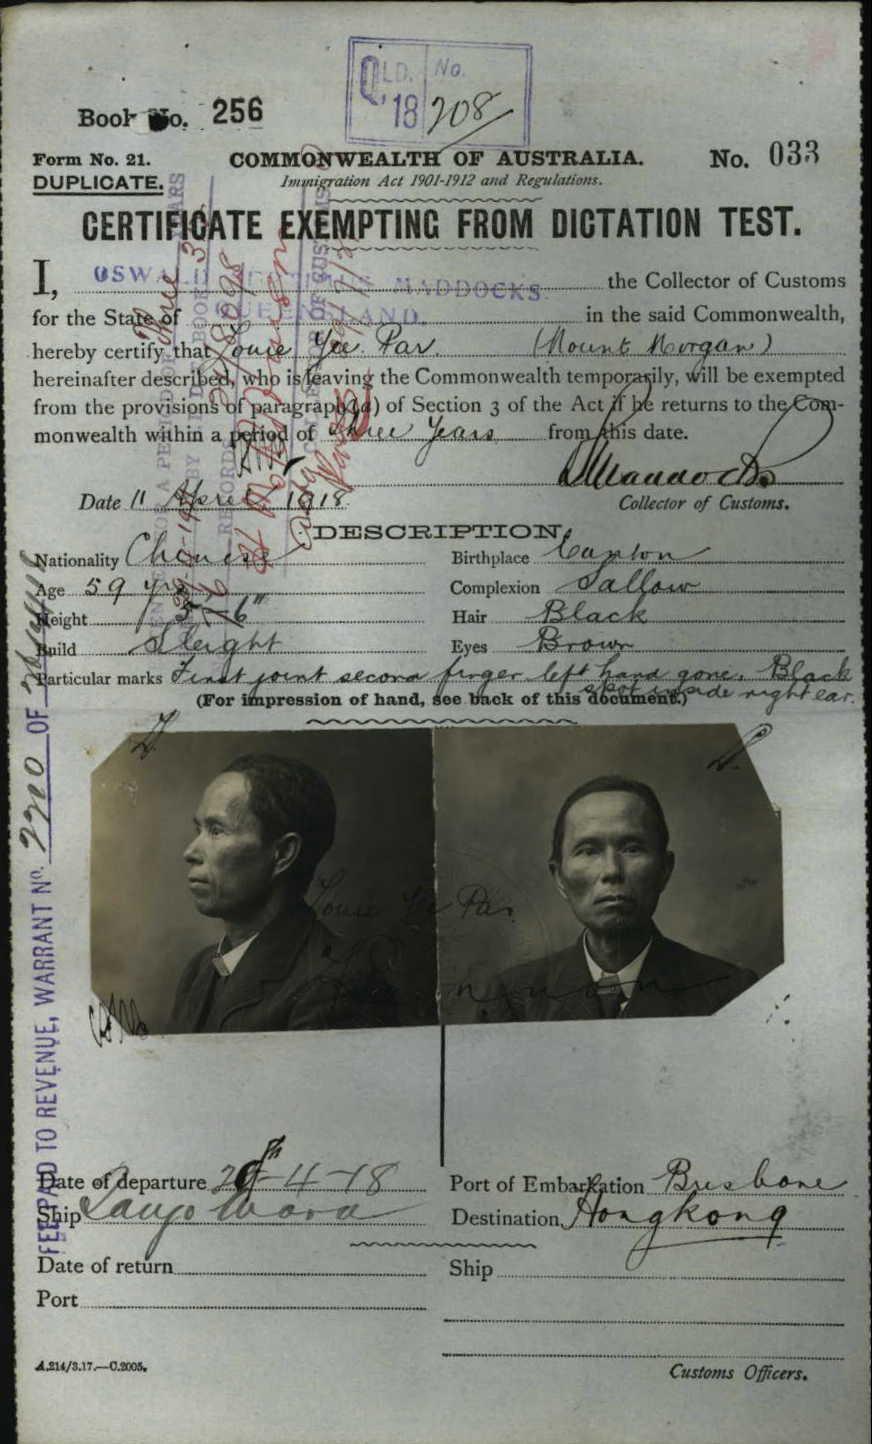 QLD. No.
18/208
Book No. 256
Form No. 21.
COMMONWEALTH OF AUSTRALIA.
No. 033
DUPLICATE.
Immigration Act 1901-1912 and Regulations.
CERTIFICATE EXEMPTING FROM DICTATION TEST.
I, OSWALD MADDOCKS the Collector of Customs
for the State of QUEENSLAND. in the said Commonwealth,
hereby certify that Louie Yee Par. (Mount Morgan)
hereinafter described, who is leaving the Commonwealth temporarily, will be exempted
from the provisions of paragraph (a) of Section 3 of the Act if he returns to the Com-
monwealth within a period of three Years from this date.
Date 11 April 1918
Collector of Customs.
DESCRIPTION.
Nationality Chinese
Birthplace Canton
Age 59 yrs
Complexion Sallow
Height 5-6"
Hair Black
Build Sleight
Eyes Brown
Particular marks First joint second finger left hand gone. Black
spot inside right ear.
(For impression of hand, see back of this document.)
Louie Yee Par
FEE PAID TO REVENUE, WARRANT No. 2200 OF
Date of departure 20th-4-18
Port of Embarkation Brisbane
Ship
Destination Hongkong
Date of return
Ship
Port
A.214/3.17.—C.2005.
Customs Officers.